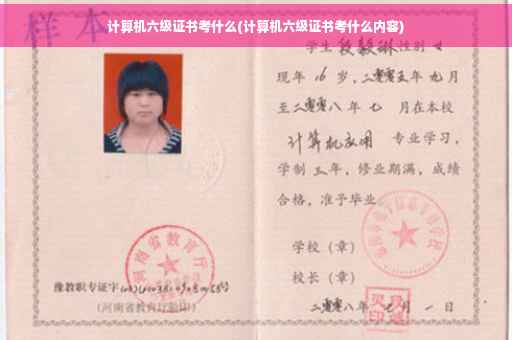 计算机六级证书考什么(计算机六级证书考什么内容)
样本
学生段毅琳性别女
现年16岁,二零零五年九月
至二零零八年七月在本校
计算机应用 专业学习,
学制三年,修业期满,成绩
合格,准予毕业
学校(章)
校长(章)
二零零八年七月一日
河南省教育厅
豫教职专证字
(河南省教育厅验印)